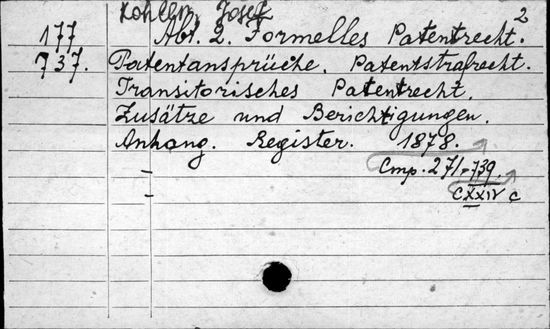 Kohler, Josef 2
177 Abt. 2. Formelles Patentrecht.
737. Patentansprüche. Patentstrafrecht.
Transitorisches Patentrecht.
Zusätze und Berichtigungen.
Anhang. Register. 1878.
Стр. 271-739.
CXXIV c